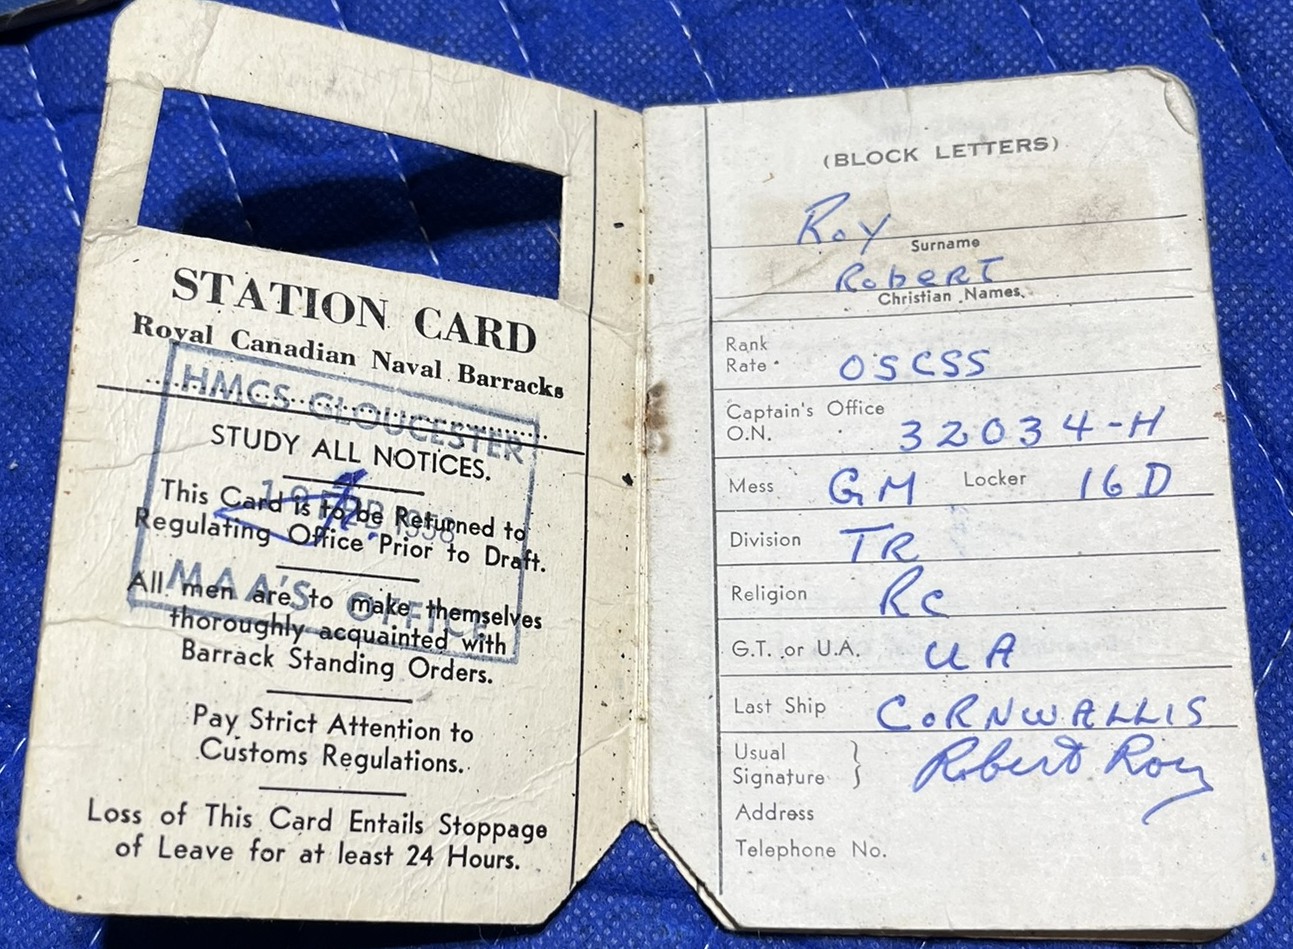 STATION CARD
Royal Canadian Naval Barracks
HMCS GLOUCESTER
STUDY ALL NOTICES.
This Card is to be Returned to
Regulating Office Prior to Draft.
FEB 1958
MAA'S OFFICE
All men are to make themselves
thoroughly acquainted with
Barrack Standing Orders.
Pay Strict Attention to
Customs Regulations.
Loss of This Card Entails Stoppage
of Leave for at least 24 Hours.
(BLOCK LETTERS)
Roy
Surname
RoberT
Christian Names.
Rank
Rate OSCSS
Captain's Office
O.N. 32034-H
Mess GM Locker 16D
Division TR
Religion RC
G.T. or U.A. UA
Last Ship CoRNWALLIS
Usual
Signature } Robert Roy
Address
Telephone No.